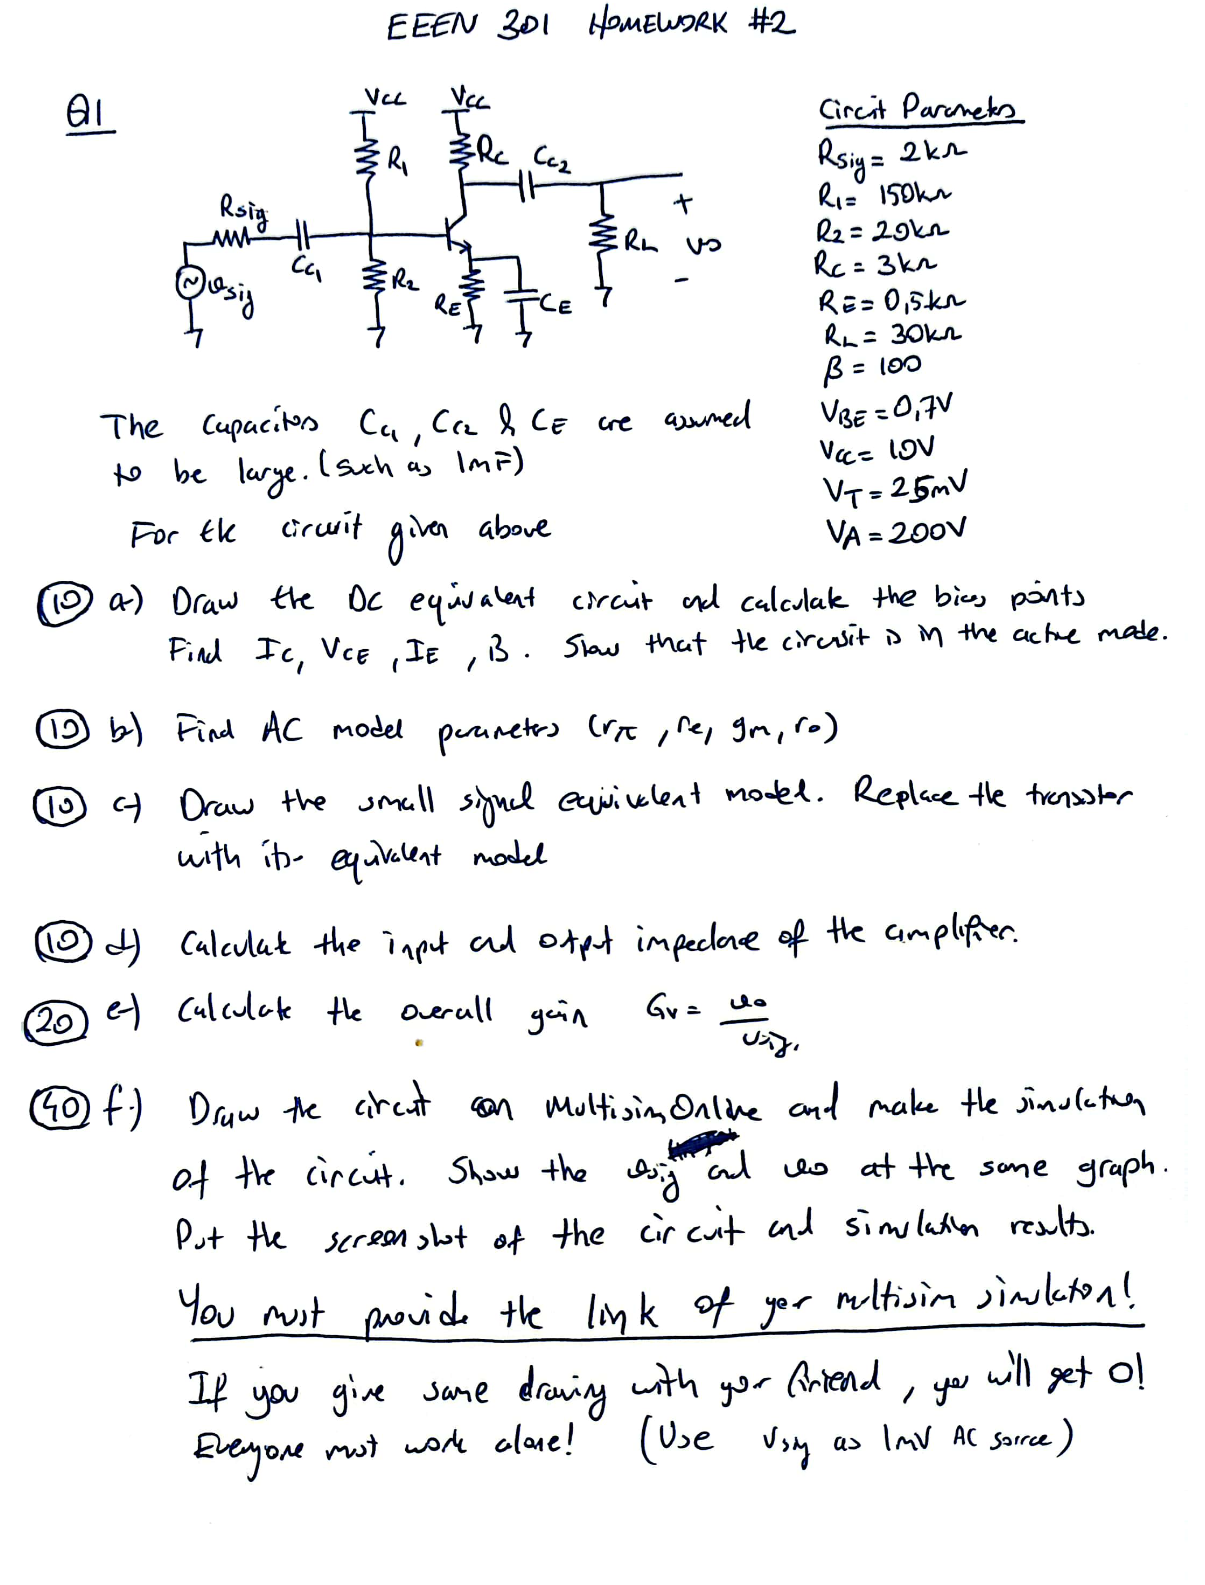 EEEN 301 HOMEWORK #2
Q1
Vcc Vcc
R1 Rc Cc2
Rsig
Cc1
vsig
R2
RE CE
RL vo
+
-
Circit Parameters
Rsig = 2kΩ
R1 = 150kΩ
R2 = 20kΩ
Rc = 3kΩ
RE = 0,5kΩ
RL = 30kΩ
β = 100
VBE = 0,7V
Vcc = 10V
VT = 25mV
VA = 200V
The Capacitors Cc1, Cc2 & CE are assumed
to be large. (such as 1mF)
For the circuit given above
10 a-) Draw the DC equivalent circuit and calculate the bias points
Find Ic, VCE, IE, IB. Show that the circuit is in the active mode.
10 b-) Find AC model parameters (rπ, re, gm, ro)
10 c-) Draw the small signal equivalent model. Replace the transistor
with its equivalent model
10 d-) Calculate the input and output impedance of the amplifier.
20 e-) Calculate the overall gain Gv = vo / vsig.
40 f-) Draw the circuit on Multisim Online and make the simulation
of the circuit. Show the vsig and vo at the same graph.
Put the screen shot of the circuit and simulation results.
You must provide the link of your multisim simulation!
If you give same drawing with your friend, you will get 0!
Everyone must work alone! (Use Vsig as 1mV AC source)